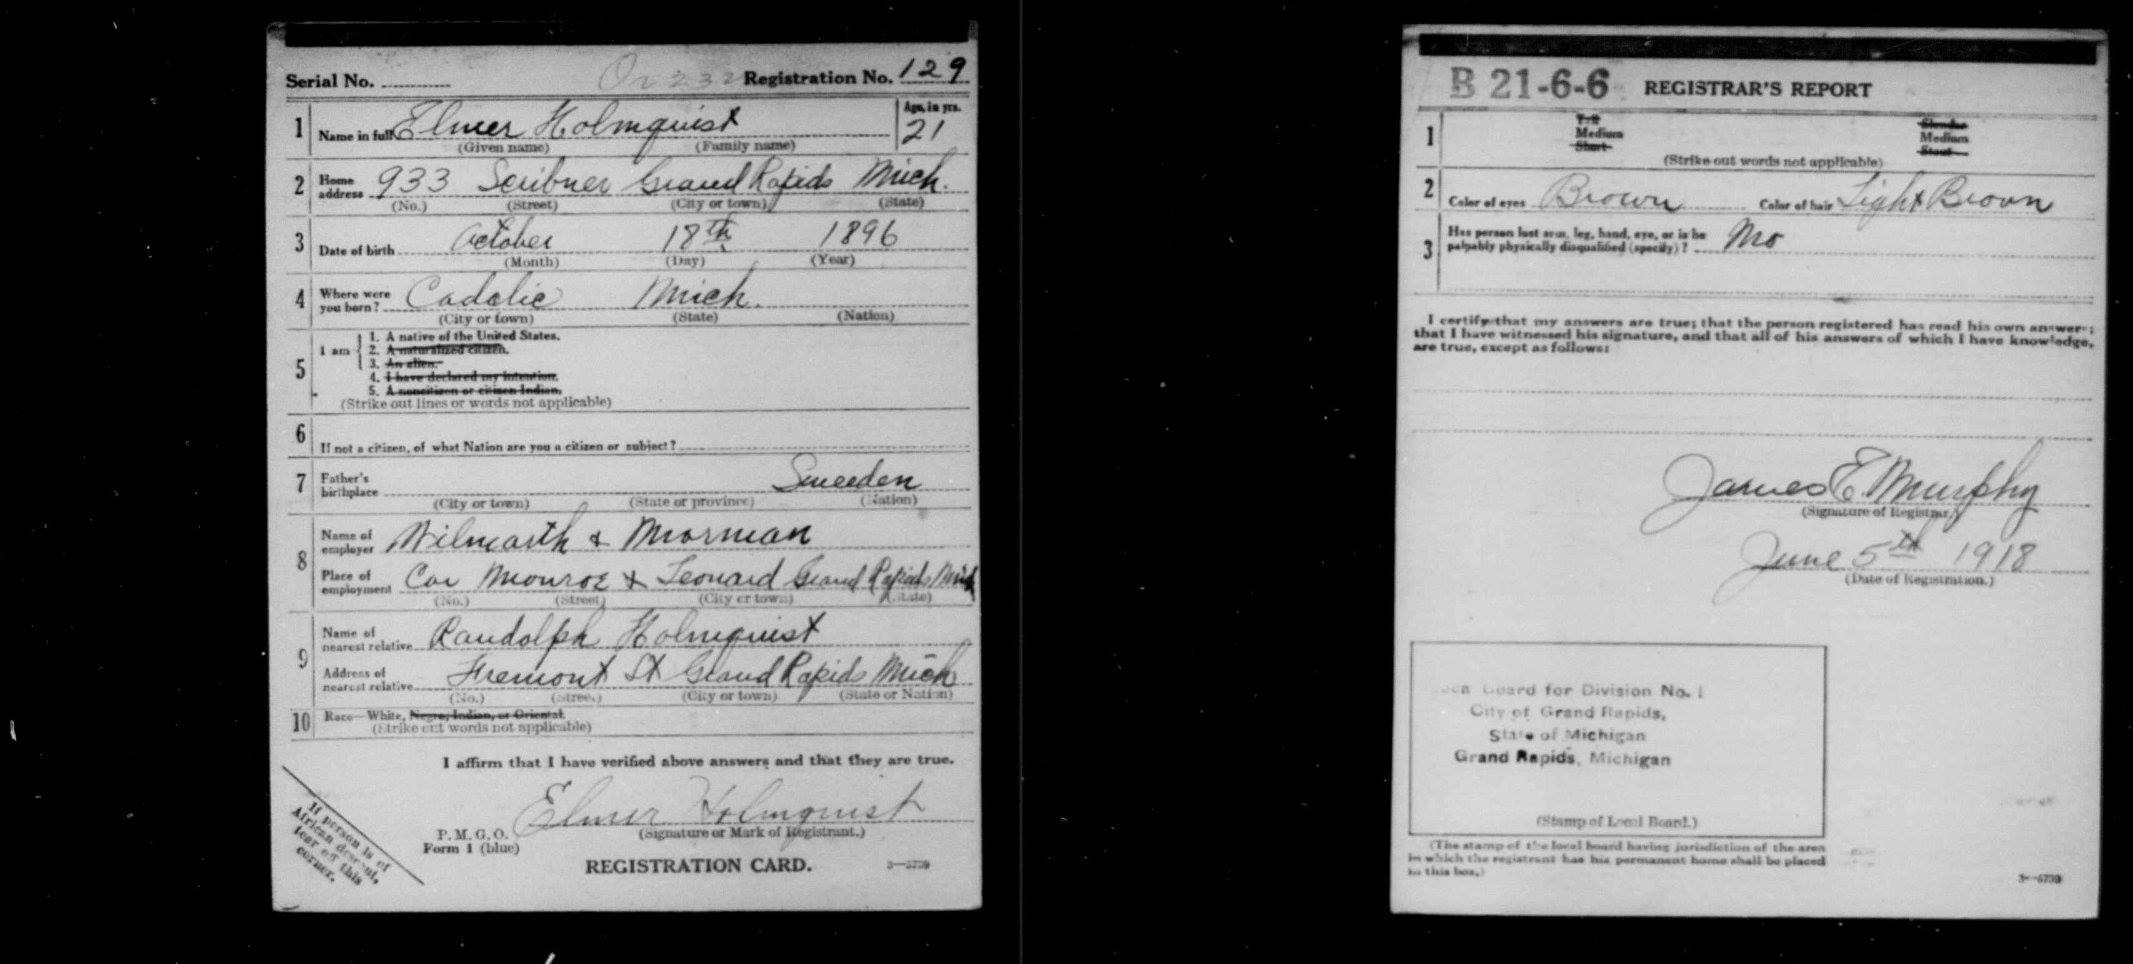 Serial No. Or 232 Registration No. 129
1 Name in full Elmer Holmquist Age, in yrs. 21
(Given name) (Family name)
2 Home address 933 Scribner Grand Rapids Mich.
(No.) (Street) (City or town) (State)
3 Date of birth October 18th 1896
(Month) (Day) (Year)
4 Where were you born? Cadalic Mich.
(City or town) (State) (Nation)
5 I am
1. A native of the United States.
2. A naturalized citizen.
3. An alien.
4. I have declared my intention.
5. A noncitizen or citizen Indian.
(Strike out lines or words not applicable)
6 If not a citizen, of what Nation are you a citizen or subject?
7 Father's birthplace Sweeden
(City or town) (State or province) (Nation)
8 Name of employer Wilmarth & Morman
Place of employment Cor Monroe & Leonard Grand Rapids Mich
(No.) (Street) (City or town) (State)
9 Name of nearest relative Randolph Holmquist
Address of nearest relative Fremont St Grand Rapids Mich
(No.) (Street) (City or town) (State or Nation)
10 Race—White, Negro, Indian, or Oriental.
(Strike out words not applicable)
I affirm that I have verified above answers and that they are true.
Elmer Holmquist
(Signature or Mark of Registrant.)
P. M. G. O.
Form 1 (blue)
REGISTRATION CARD. 3—5739
If person is of
African descent,
tear off this
corner.
B 21-6-6 REGISTRAR'S REPORT
1 Tall Slender
Medium Medium
Short Stout
(Strike out words not applicable)
2 Color of eyes Brown Color of hair Light Brown
3 Has person lost arm, leg, hand, eye, or is he
palpably physically disqualified (specify)? No
I certify that my answers are true; that the person registered has read his own answers;
that I have witnessed his signature, and that all of his answers of which I have knowledge,
are true, except as follows:
James E. Murphy
(Signature of Registrar.)
June 5th 1918
(Date of Registration.)
Board for Division No. 1
City of Grand Rapids,
State of Michigan
Grand Rapids, Michigan
(Stamp of Local Board.)
(The stamp of the local board having jurisdiction of the area
in which the registrant has his permanent home shall be placed
in this box.)
3—5739